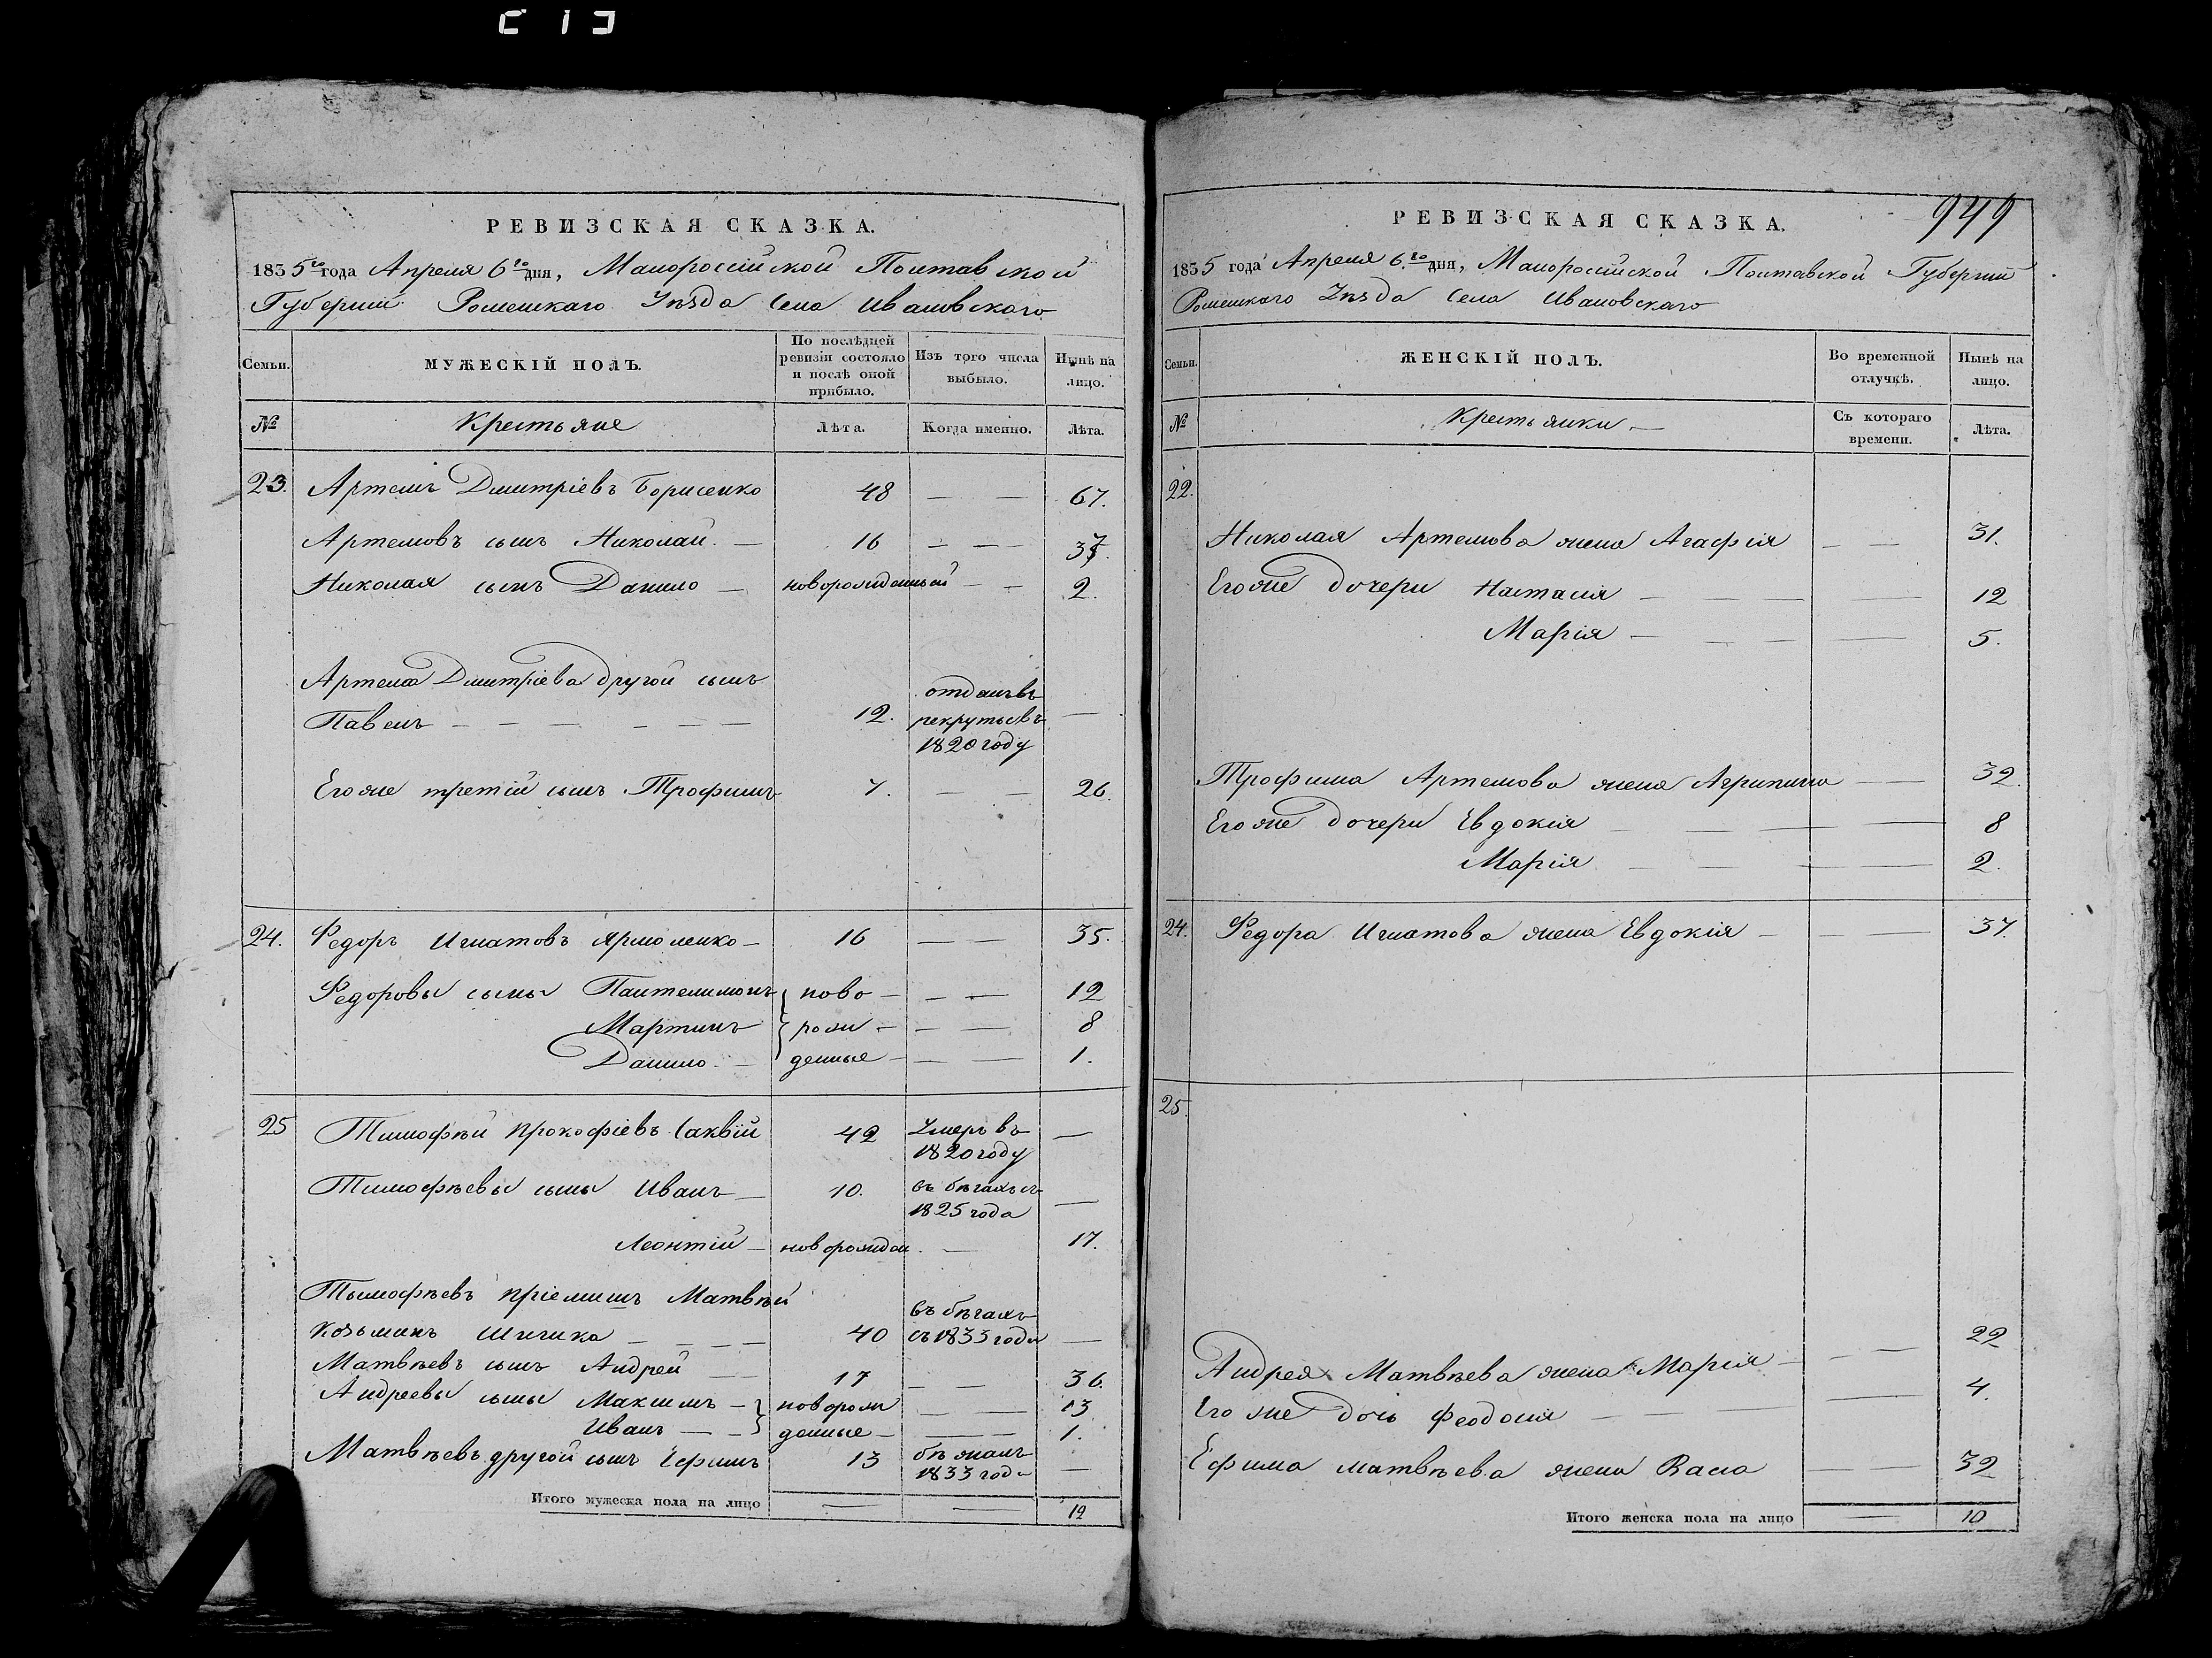 РЕВИЗСКАЯ СКАЗКА.
1835го года Апреля 6го дня, Малороссійской Полтавской
Губерніи Роменского Уѣзда Села Ивановского
Семьи. МУЖЕСКІЙ ПОЛЪ. По послѣдней ревизіи состояло и послѣ оной прибыло. Изъ того числа выбыло. Нынѣ на лицо.
№ Крестьяне Лѣта. Когда именно. Лѣта.
23. Артемъ Дмитріевъ Борисенко 48 — — 67.
Артемовъ сынъ Николай — 16 — — 37.
Николая сынъ Данило — новорожденный — — 2.
Артема Дмитріева другой сынъ
Павелъ — — — — — — 12. отданъ въ рекруты въ 1820 году —
Его же третій сынъ Трофимъ 7. — — 26.
24. Федоръ Игнатовъ Ярмоленко — 16 — — 35.
Федоровы сыны Пантелимонъ ново — — — 12
Мартинъ рож — — — 8
Данило — денные — — — 1.
25 Тимофѣй Прокофіевъ Саквій 42 Умеръ въ 1820 году —
Тимофѣевы сыны Иванъ — 10. въ бѣгахъ съ 1825 года —
Леонтій — новорожден. — 17.
Тымофѣевъ пріемышъ Матвѣй
Козьминъ — — — 40 въ бѣгахъ съ 1833 года —
Матвѣевъ сынъ Андрей — — 17 — — 36.
Андреевы сыны Максимъ — новорож — — 13
Иванъ — — денные — — — 1.
Матвѣевъ другой сынъ Ефимъ 13 бѣжалъ 1833 года —
Итого мужеска пола на лицо — — 12
949
РЕВИЗСКАЯ СКАЗКА.
1835 года Апреля 6.го дня, Малоросійской Полтавской Губерніи
Роменского Уѣзда Села Ивановского
Семьи. ЖЕНСКІЙ ПОЛЪ. Во временной отлучкѣ. Нынѣ на лицо.
№ Крестьянки — Съ котораго времени. Лѣта.
22.
Николая Артемова жена Агафія — — 31.
Его же дочери Настасія — — — — 12
Марія — — — — 5.
Трофима Артемова жена Агрипина — — 32.
Его же дочери Евдокія — — — — 8
Марія — — — — 2.
24. Федора Игнатова жена Евдокія — — — 37.
25.
Андрея Матвѣева жена Марія — — — 22
Его же дочь Феодосія — — — 4.
Ефима Матвѣева жена Васа — — 32
Итого женска пола на лицо — 10